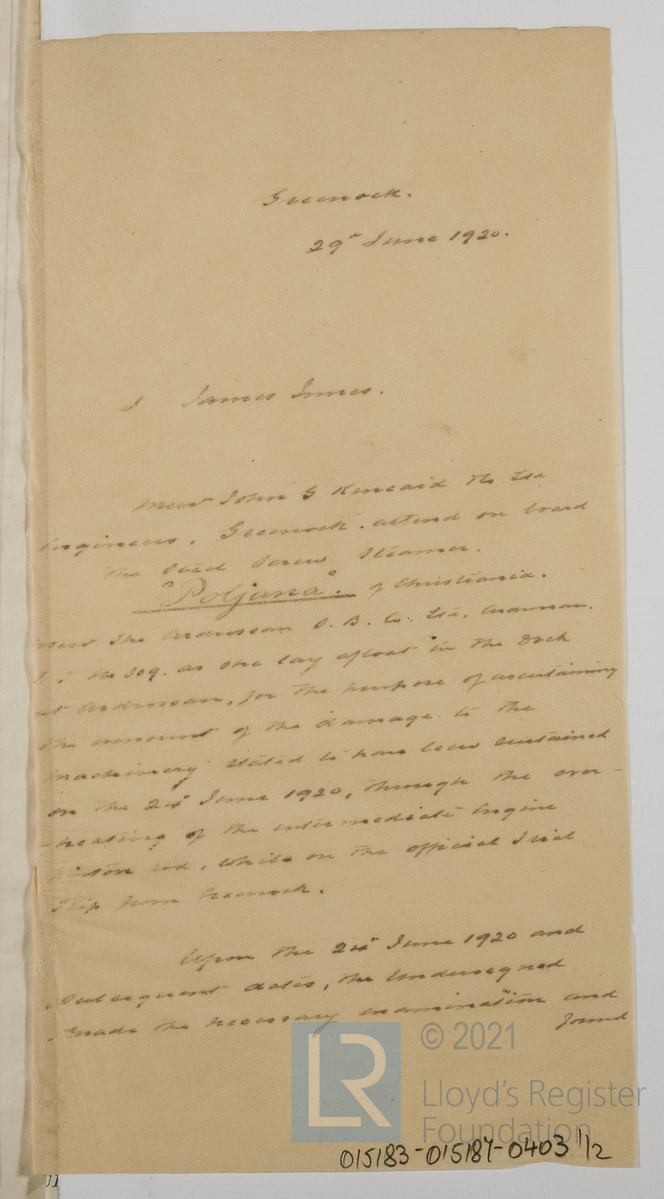 Greenock.
29th June 1920.
I James Innes.
Messrs John G Kincaid & Co Ltd
Engineers, Greenock. attend on board
the Steel Screw Steamer.
"Poljana" of Christiania.
Messrs The Ardrossan D. B. Co. Ltd, Ardrossan.
as she lay afloat in the Dock
at Ardrossan, for the purpose of ascertaining
the amount of the damage to the
machinery stated to have been sustained
on the 24th June 1920, through the over-
-heating of the intermediate Engine
piston rod, while on the official Trial
Trip from Greenock.
Upon the 24th June 1920 and
subsequent dates, the Undersigned
made the necessary examination and
found
© 2021
LR
Lloyd's Register
Foundation
015183-015187-0403 1/2